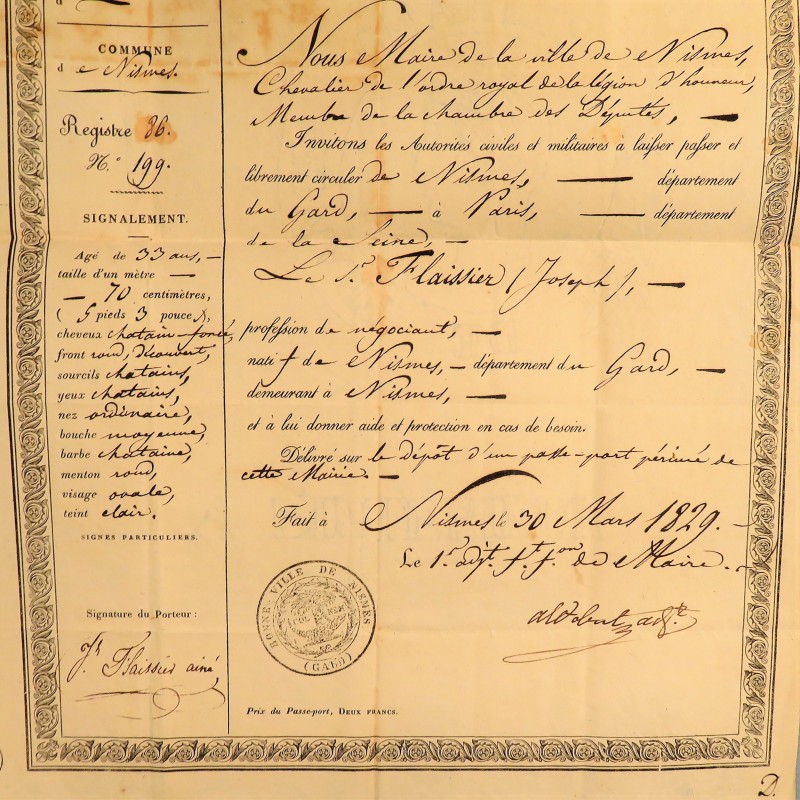 d
COMMUNE
d e Nismes.
Registre 86.
N.° 199.
SIGNALEMENT.
Agé de 33 ans,
taille d'un mètre —
— 70 centimètres,
( 5 pieds 3 pouces ),
cheveux chatain-foncé,
front rond, découvert,
sourcils chatains,
yeux chatains,
nez ordinaire,
bouche moyenne,
barbe chataine,
menton rond,
visage ovale,
teint clair.
SIGNES PARTICULIERS.
Signature du Porteur :
Jh Flaissier ainé
Nous Maire de la ville de Nismes,
Chevalier de l'ordre royal de la légion d'honneur,
Membre de la chambre des Députés, —
Invitons les Autorités civiles et militaires à laisser passer et
librement circuler de Nismes, — département
du Gard, — à Paris, — département
de la Seine, —
Le Sr. Flaissier (Joseph), —
profession de négociant, —
natif de Nismes, — département du Gard,
demeurant à Nismes, —
et à lui donner aide et protection en cas de besoin.
Délivré sur le dépôt d'un passe-port périmé de
cette Mairie. —
Fait à Nismes le 30 Mars 1829. —
Le 1r. adjt. ft. fon de Maire. —
adjt
BONNE VILLE DE NISMES
(GALD)
COL NEM
Prix du Passe-port, DEUX FRANCS.
D.